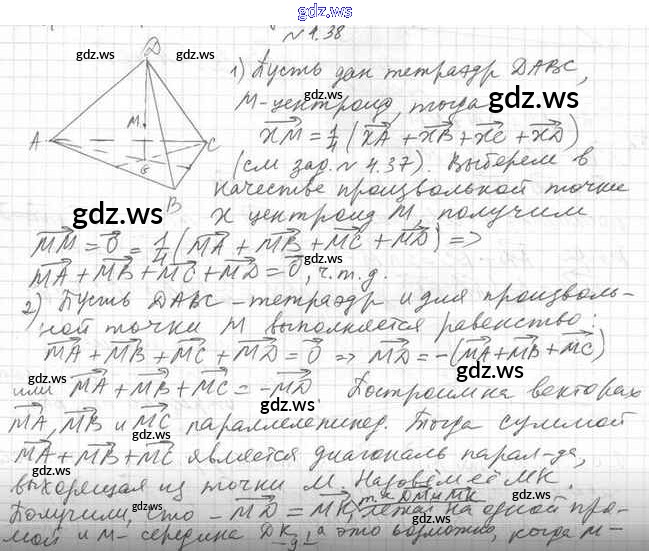 gdz.ws
№ 4.38
1) Пусть дан тетраэдр DABC,
M-центроид, тогда
XM = 1/4 (XA + XB + XC + XD)
(см зад. № 4.37). Выберем в
качестве произвольной точки
X центроид M, получим
MM = 0 = 1/4 (MA + MB + MC + MD) =>
MA + MB + MC + MD = 0, ч.т.д.
2) Пусть DABC - тетраэдр и для произволь-
ной точки M выполняется равенство:
MA + MB + MC + MD = 0 => MD = -(MA + MB + MC)
или MA + MB + MC = -MD. Построим на векторах
MA, MB и MC параллелепипед. Тогда суммой
MA + MB + MC является диагональ парал-да,
выходящая из точки M. Назовём её MK.
Получили, что -MD = MK, т.к DM и MK лежат на одной пря-
мой и M- середина DK, а это возможно, когда M-
D
A
M
C
G
B
gdz.ws
gdz.ws
gdz.ws
gdz.ws
gdz.ws
gdz.ws
gdz.ws
gdz.ws
gdz.ws
gdz.ws
gdz.ws
gdz.ws
gdz.ws